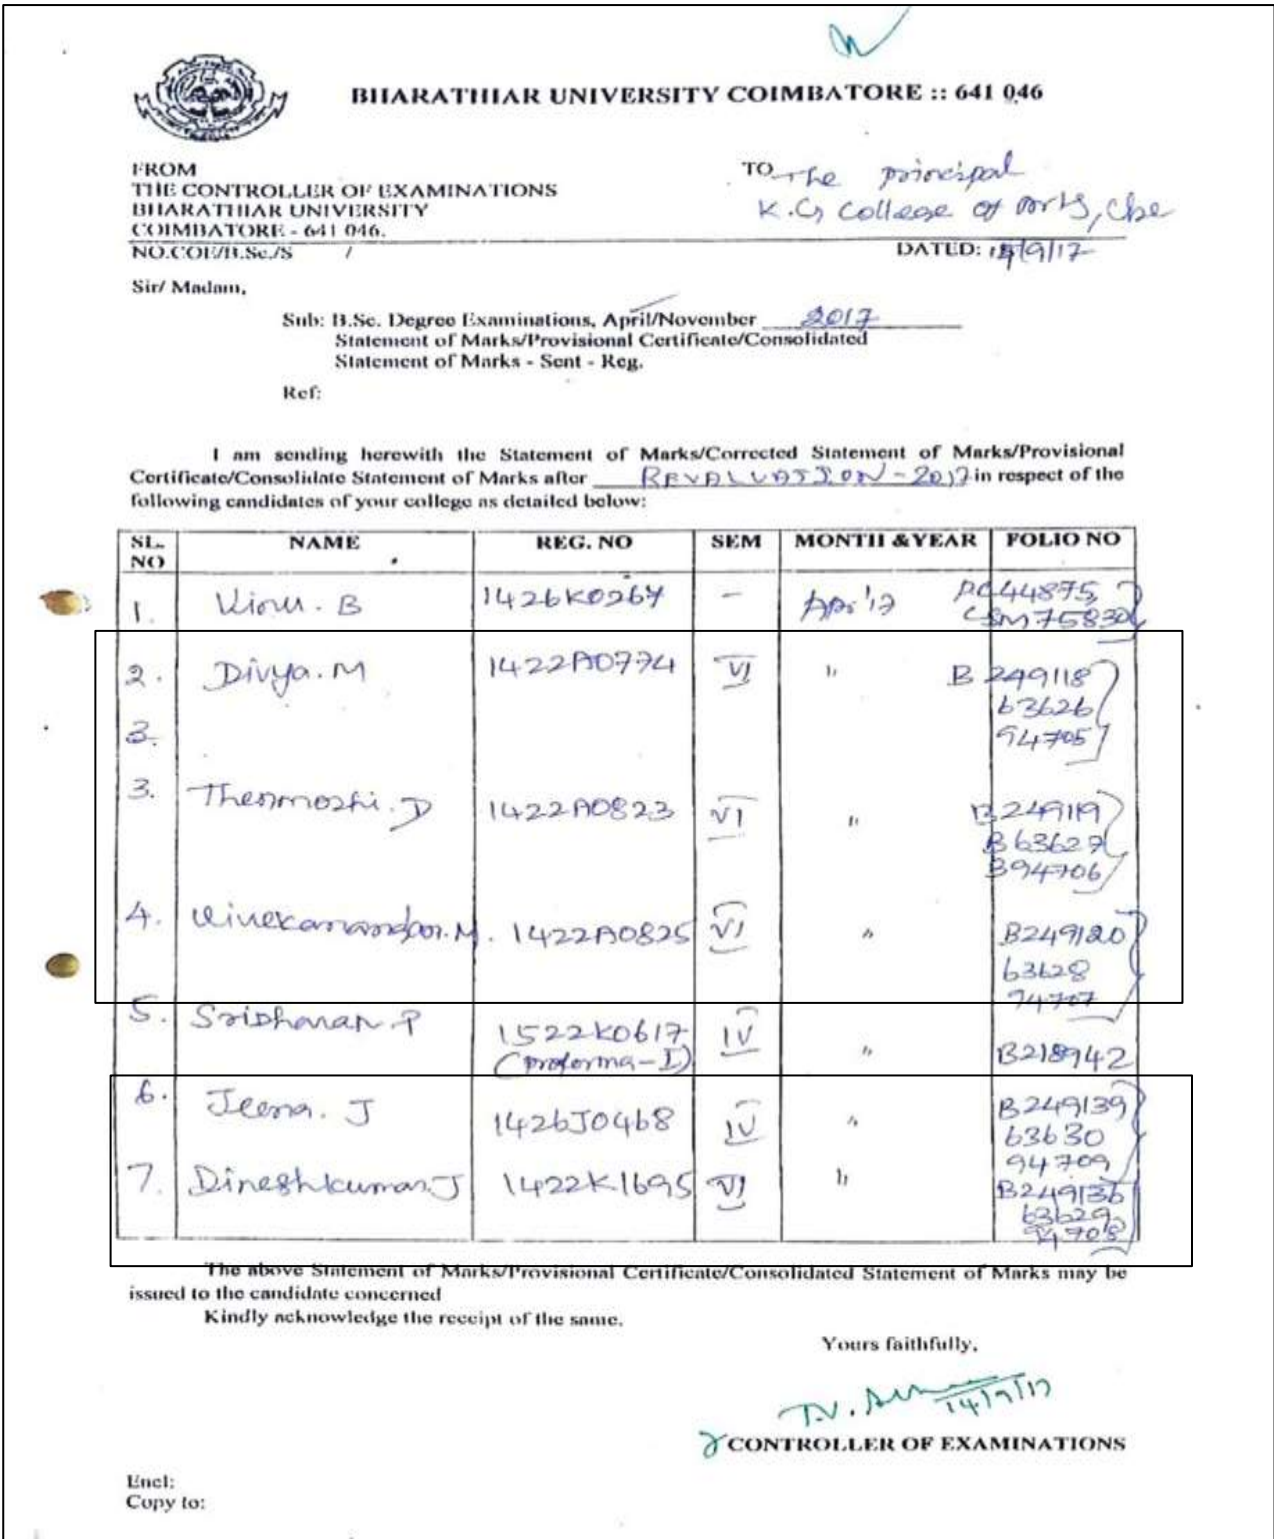 BHARATHIAR UNIVERSITY COIMBATORE :: 641 046
FROM
THE CONTROLLER OF EXAMINATIONS
BHARATHIAR UNIVERSITY
COIMBATORE - 641 046.
NO.COE/B.Sc./S /
TO The principal
K.G College of Arts, Cbe
DATED: 14/9/17
Sir/ Madam,
Sub: B.Sc. Degree Examinations, April/November 2017
Statement of Marks/Provisional Certificate/Consolidated
Statement of Marks - Sent - Reg.
Ref:
I am sending herewith the Statement of Marks/Corrected Statement of Marks/Provisional
Certificate/Consolidate Statement of Marks after REVALUATION - 2017 in respect of the
following candidates of your college as detailed below:
SL. NO NAME REG. NO SEM MONTH & YEAR FOLIO NO
1. B 1426K0267 - Apr'17 PC44875,
CSM75830
2. Divya. M 1422A0774 VI " B 249118
63626
3. 94705
3. Thenmozhi. D 1422A0823 VI " B249119
B63627
B94706
4. Vivekanandan. M. 1422A0825 VI " B249120
63628
94707
5. Sridharan. P 1522K0617 IV " B218942
(Proforma-I)
6. Jeena. J 1426J0468 IV " B249139
63630
94709
7. Dineshkumar. J 1422K1695 VI " B249136
63629
94708
The above Statement of Marks/Provisional Certificate/Consolidated Statement of Marks may be
issued to the candidate concerned
Kindly acknowledge the receipt of the same.
Yours faithfully,
14/9/17
CONTROLLER OF EXAMINATIONS
Encl:
Copy to: